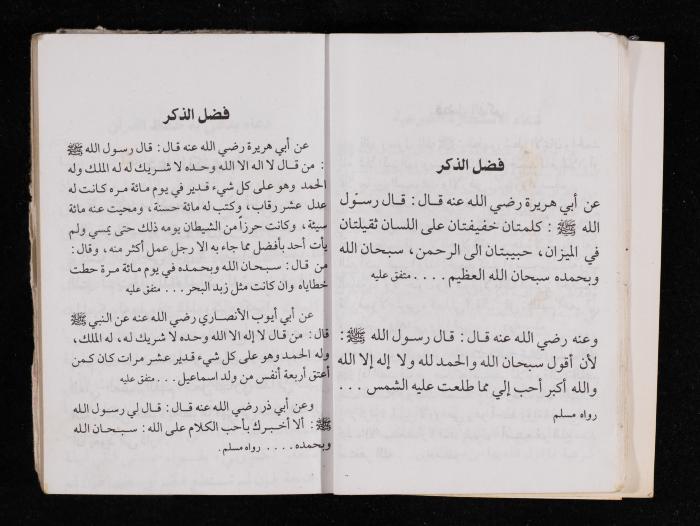 فضل الذكر
عن أبي هريرة رضي الله عنه قال: قال رسول
الله ﷺ : كلمتان خفيفتان على اللسان ثقيلتان
في الميزان، حبيبتان الى الرحمن، سبحان الله
وبحمده سبحان الله العظيم . . . . متفق عليه
وعنه رضي الله عنه قال: قال رسول الله ﷺ :
لأن أقول سبحان الله والحمد لله ولا إله إلا الله
والله أكبر أحب إلي مما طلعت عليه الشمس . . .
رواه مسلم
فضل الذكر
عن أبي هريرة رضي الله عنه قال: قال رسول الله ﷺ
: من قال لا اله الا الله وحده لا شريك له له الملك وله
الحمد وهو على كل شيء قدير في يوم مائة مره كانت له
عدل عشر رقاب، وكتب له مائة حسنة، ومحيت عنه مائة
سيئة، وكانت حرزاً من الشيطان يومه ذلك حتى يمسي ولم
يأت أحد بأفضل مما جاء به الا رجل عمل أكثر منه، وقال:
من قال: سبحان الله وبحمده في يوم مائة مرة حطت
خطاياه وان كانت مثل زبد البحر . . . متفق عليه
عن أبي أيوب الأنصاري رضي الله عنه عن النبي ﷺ
قال: من قال لا إله الا الله وحده لا شريك له، له الملك،
وله الحمد وهو على كل شيء قدير عشر مرات كان كمن
أعتق أربعة أنفس من ولد اسماعيل . . . متفق عليه
وعن أبي ذر رضي الله عنه قال: قال لي رسول الله
ﷺ : ألا أخبرك بأحب الكلام على الله: سبحان الله
وبحمده . . . . رواه مسلم.